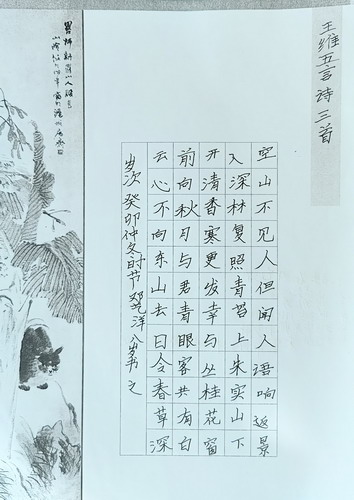 王维五言诗三首
空山不见人但闻人语响返景
入深林复照青苔上朱实山下
开清香寒更发幸与丛桂花窗
前向秋月与君青眼客共有白
云心不向东山去日令春草深
岁次癸卯仲冬时节邓洋八岁书之